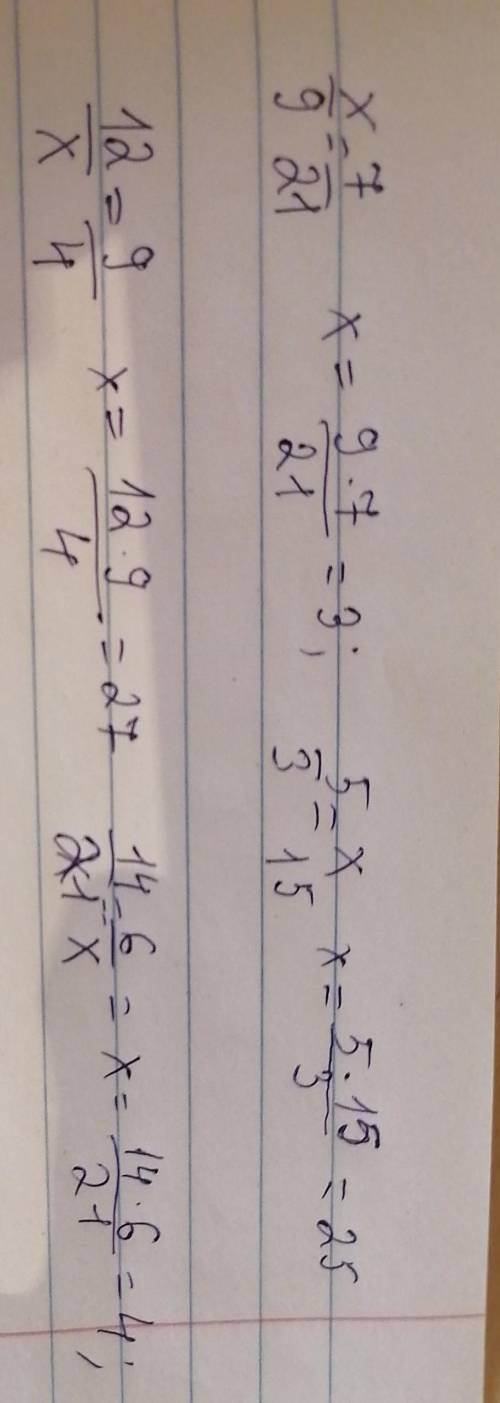 x/9 = 7/21 x = 9·7/21 = 3; 5/3 = x/15 x = 5·15/3 = 25
12/x = 9/4 x = 12·9/4 = 27 14/21 = 6/x = x = 14·6/21 = 4;